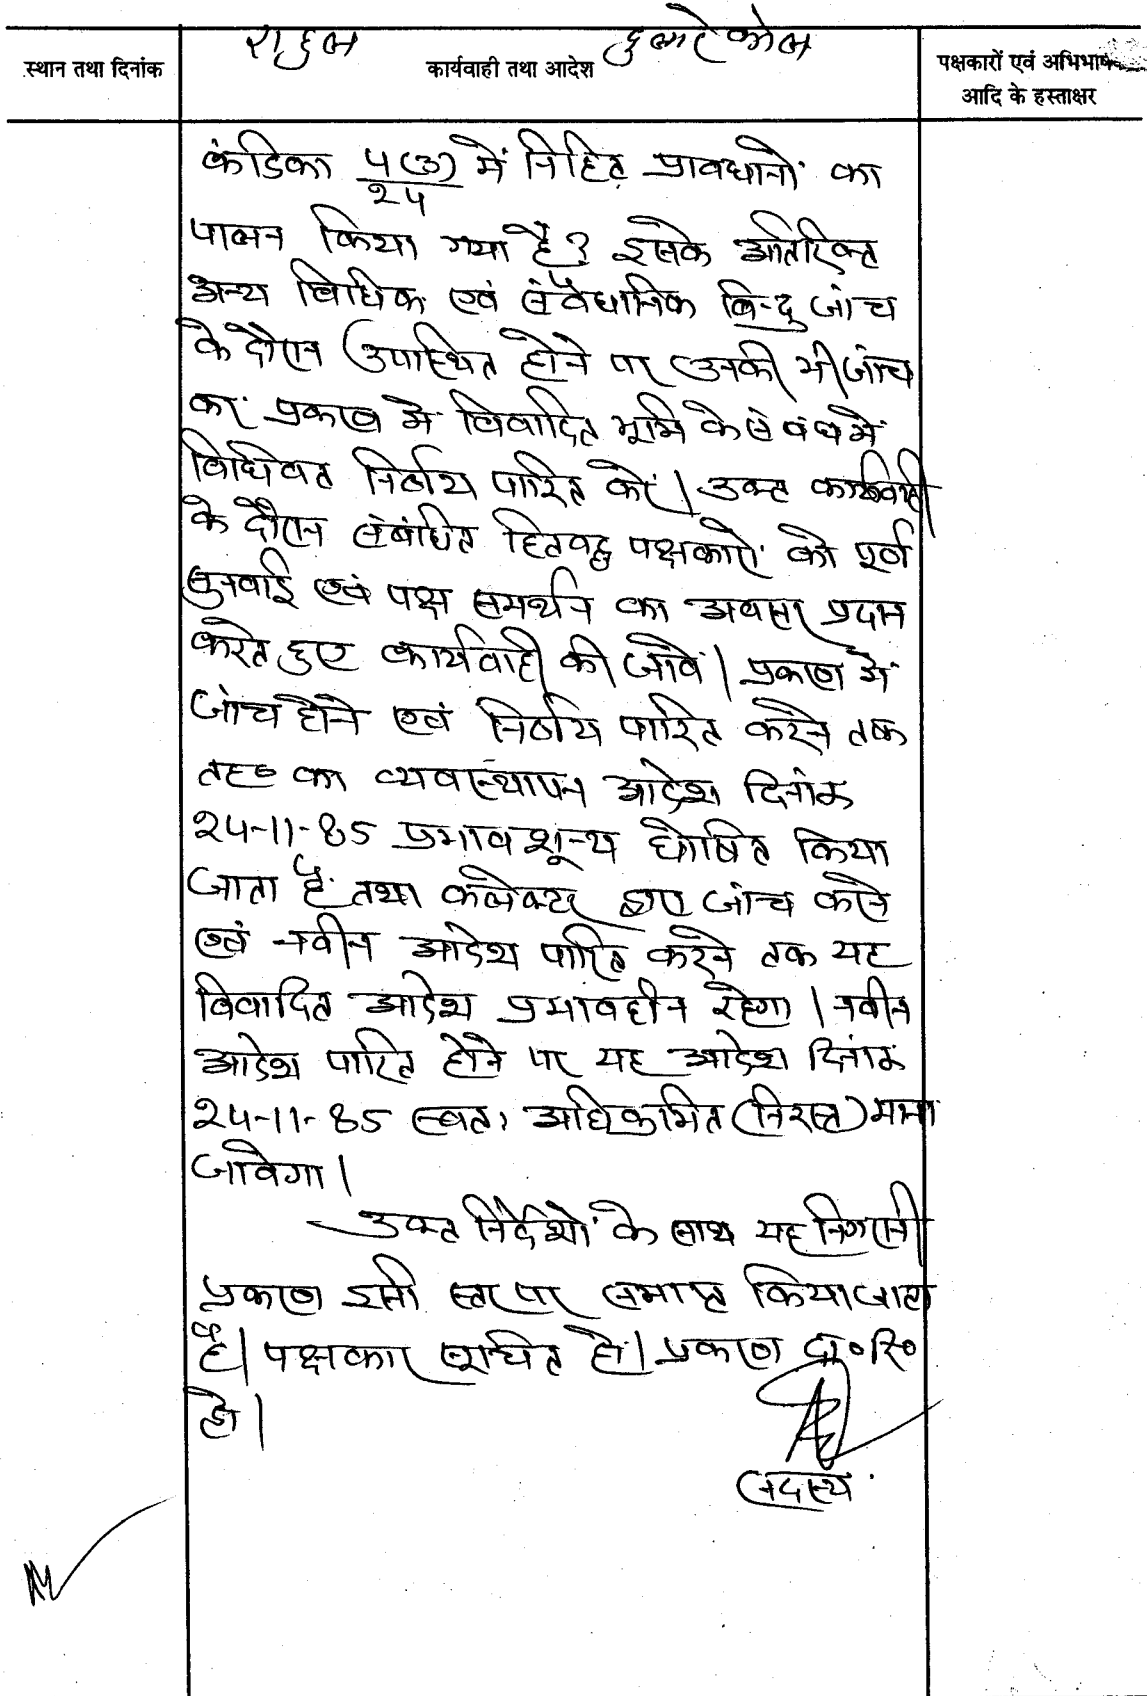 राहुल दुलारे कोल
स्थान तथा दिनांक
कार्यवाही तथा आदेश
पक्षकारों एवं अभिभाषकों
आदि के हस्ताक्षर
कंडिका में निहित प्रावधानों का
24
पालन किया गया है? इसके अतिरिक्त
अन्य विधिक एवं संवैधानिक बिन्दु जांच
के दौरान उपस्थित होने पर उनकी भी जांच
कर प्रकरण में विवादित भूमि के संबंध में
विधिवत निर्णय पारित करें। उक्त कार्यवाही
के दौरान संबंधित हितबद्ध पक्षकारों को पूर्ण
सुनवाई एवं पक्ष समर्थन का अवसर प्रदान
करते हुए कार्यवाही की जावें। प्रकरण में
जांच होने एवं निर्णय पारित करने तक
तह० का व्यवस्थापन आदेश दिनांक
24-11-85 प्रभावशून्य घोषित किया
जाता है तथा कलेक्टर द्वारा जांच करने
एवं नवीन आदेश पारित करने तक यह
विवादित आदेश प्रभावहीन रहेगा। नवीन
आदेश पारित होने पर यह आदेश दिनांक
24-11-85 स्वतः अधिक्रमित (निरस्त) माना
जावेगा।
उक्त निर्देशों के साथ यह निगरानी
प्रकरण इसी स्तर पर समाप्त किया जाता
है। पक्षकार सूचित हों। प्रकरण दा०रि०
हो।
सदस्य